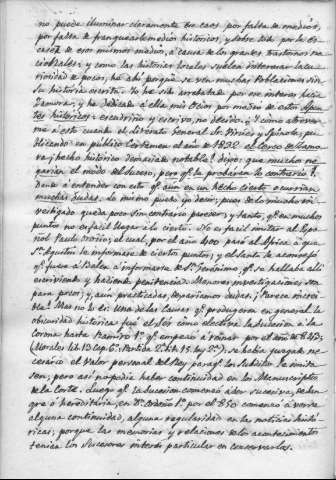 no puede iluminar claramente en caos por falta de medios,
por falta de franquear medios historicos, y sobre todo por la es-
casez de esos mismos medios, á causa de los grandes trastornos so-
ciables: y como las historias locales suelen interesar la cu-
riosidad de pocos, hé ahí porque se ven muchas Poblaciones sin
su historia escrita. Yo he sido arrebatado por ese interes hácia
Zamora, y he dedicado á ella mis Ocios por medio de estos Apun-
tes historicos: escudriño y escrivo, no decido; ¿Y como atrever-
me á esto cuando el literato General Sr.
blicando en publico Certamen el año de 1822 el cerco de Zamo-
ra ¡hecho historico demasiado notable! dijo: que muchos ne-
garian el modo del suceso, pero qe. la probaran lo contrario?
Dando á entender con esto qe. aun en un hecho cierto ocurrian
muchas dudas. Lo mismo puedo yo decir, pues de lo mucho in-
vestigado queda poco sin contrario parecer; y tanto, qe. en muchos
puntos no es facil llegar á lo cierto. No es facil imitar al Espa-
ñol Paulo Orosio; el cual, por el año 400 pasó al Africa á que
Sn. Agustin le informase de ciertos puntos; y el Santo le aconsejó
qe. fuera á Belen á informarse de Sn. Gerónimo, qe. se hallaba allí
escriviendo y haciendo penitencia. Menores investigaciones son
para pocos; y, aun practicadas, dejarianos dudas; ¡Parece increi-
ble! Mas no lo es. Una de las Causas qe. produgeron en general la
obscuridad historica fué el ser como electiva la sucesion á la
corona hasta Ramiro 1º. qe. empezó á reinar por el año de 843;
Morales lib. 13 cap. 6: Partida 2. tit. 15. ley 2.); se había juzgado ne-
cesario el valor personal del Rey para qe. los Subditos le imita-
sen; pero así no podia haber continuidad en los Manuscriptos
de la Corte. Luego qe. la sucesion comenzó á ser sucesiva, ó de san-
gre ó hereditária, en Dn. Ordoño 1º. por el 850 comenzó á verse
alguna continuidad, alguna regularidad en las noticias histó-
ricas; porque las memorias y relaciones de los acontecimientos
tenia los Sucesores interés particular en conservarlas.